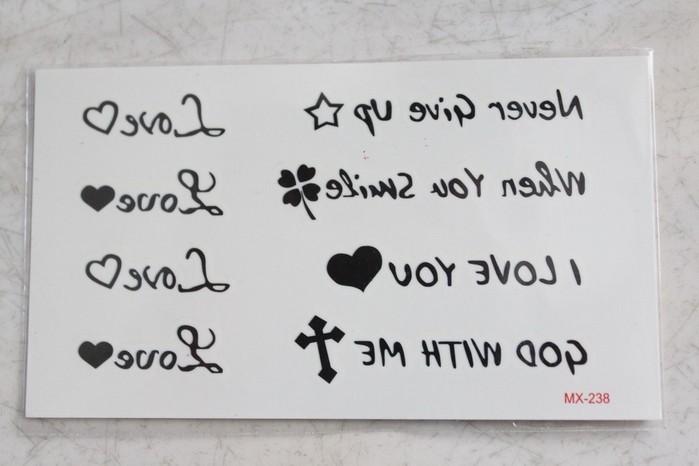 Love
Never Give Up
Love
When You Smile
Love
I LOVE YOU
Love
GOD WITH ME
MX-238